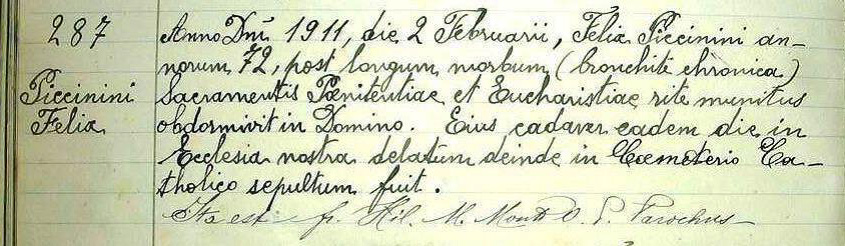 287
Piccinini
Felix
Anno Dnĩ 1911, die 2 Februarii, Felix Piccinini an-
norum 72, post longum morbum (bronchite chronica)
Sacramentis Pœnitentiae et Eucharistiae rite munitus
obdormivit in Domino. Eius cadaver eadem die in
Ecclesia nostra delatum deinde in Cœmeterio Ca-
tholico sepultum fuit.
Ita est fr. Hil. M. O. P. Parochus